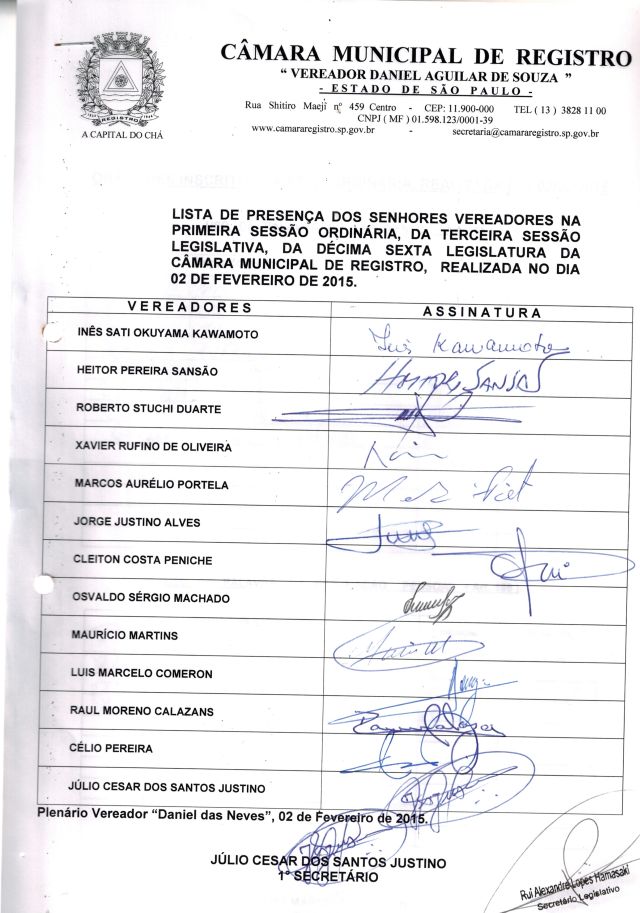 CÂMARA MUNICIPAL DE REGISTRO
“ VEREADOR DANIEL AGUILAR DE SOUZA ”
- ESTADO DE SÃO PAULO -
Rua Shitiro Maeji nº 459 Centro - CEP: 11.900-000 TEL ( 13 ) 3828 11 00
CNPJ ( MF ) 01.598.123/0001-39
www.camararegistro.sp.gov.br - secretaria@camararegistro.sp.gov.br
REGISTRO
A CAPITAL DO CHÁ
LISTA DE PRESENÇA DOS SENHORES VEREADORES NA
PRIMEIRA SESSÃO ORDINÁRIA, DA TERCEIRA SESSÃO
LEGISLATIVA, DA DÉCIMA SEXTA LEGISLATURA DA
CÂMARA MUNICIPAL DE REGISTRO, REALIZADA NO DIA
02 DE FEVEREIRO DE 2015.
VEREADORES ASSINATURA
INÊS SATI OKUYAMA KAWAMOTO Kawamoto
HEITOR PEREIRA SANSÃO
ROBERTO STUCHI DUARTE
XAVIER RUFINO DE OLIVEIRA
MARCOS AURÉLIO PORTELA
JORGE JUSTINO ALVES
CLEITON COSTA PENICHE
OSVALDO SÉRGIO MACHADO
MAURÍCIO MARTINS
LUIS MARCELO COMERON
RAUL MORENO CALAZANS
CÉLIO PEREIRA
JÚLIO CESAR DOS SANTOS JUSTINO
Plenário Vereador “Daniel das Neves”, 02 de Fevereiro de 2015.
JÚLIO CESAR DOS SANTOS JUSTINO
1º SECRETÁRIO
Rui Alexandre Lopes Hamasaki
Secretário Legislativo